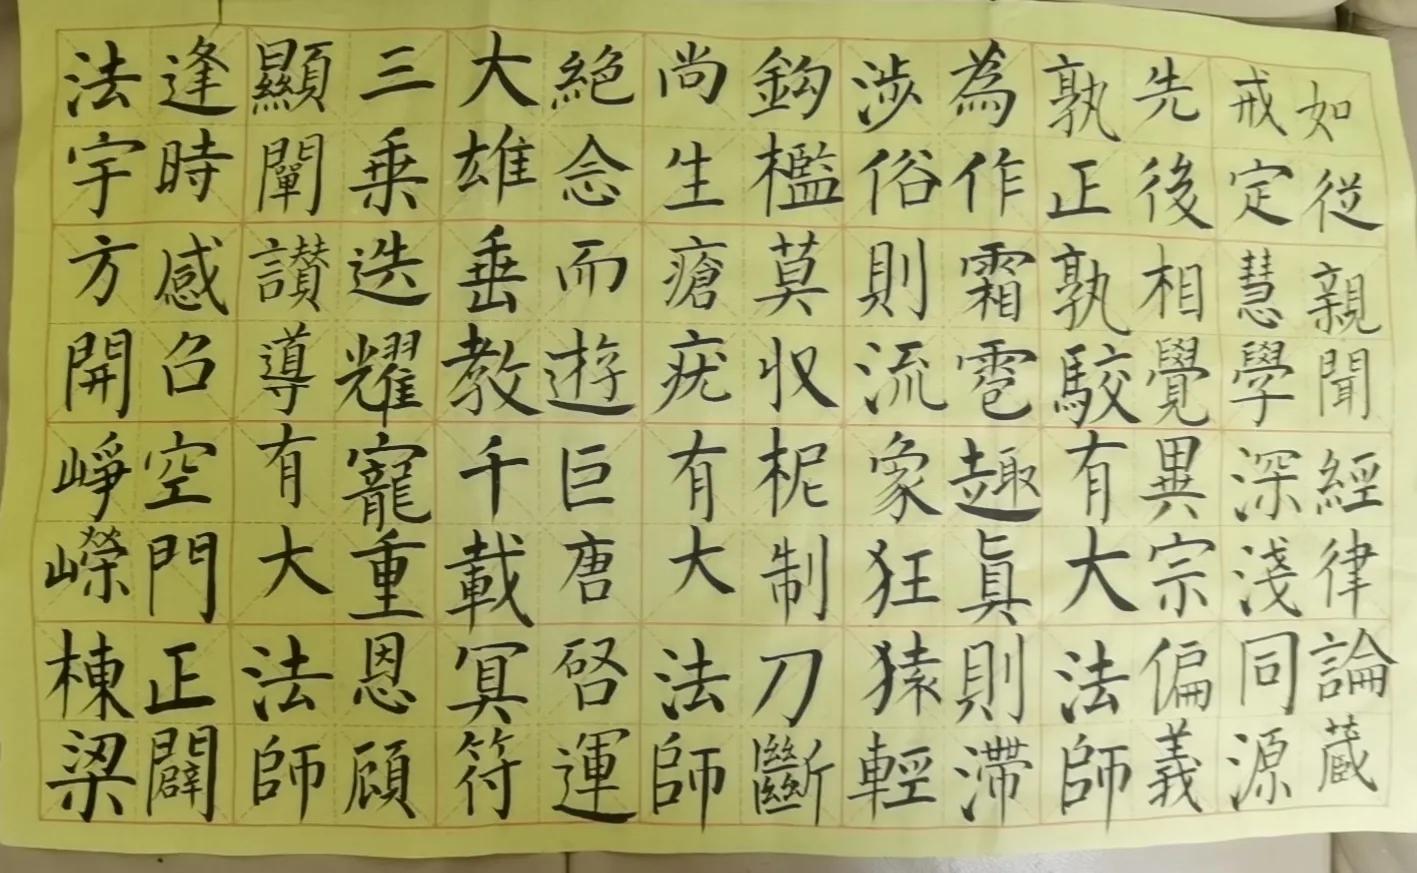 如從親聞經律論蔵
戒定慧學深淺同源
先後相覺異宗偏義
孰正孰駮有大法師
為作霜雹趣眞則滯
涉俗則流象狂猿輕
鈎檻莫収柅制刀斷
尚生瘡疣有大法師
絕念而遊巨唐啓運
大雄垂教千載冥符
三乘迭耀寵重恩顧
顯闡讃導有大法師
逢時感召空門正闢
法宇方開崢嶸棟梁